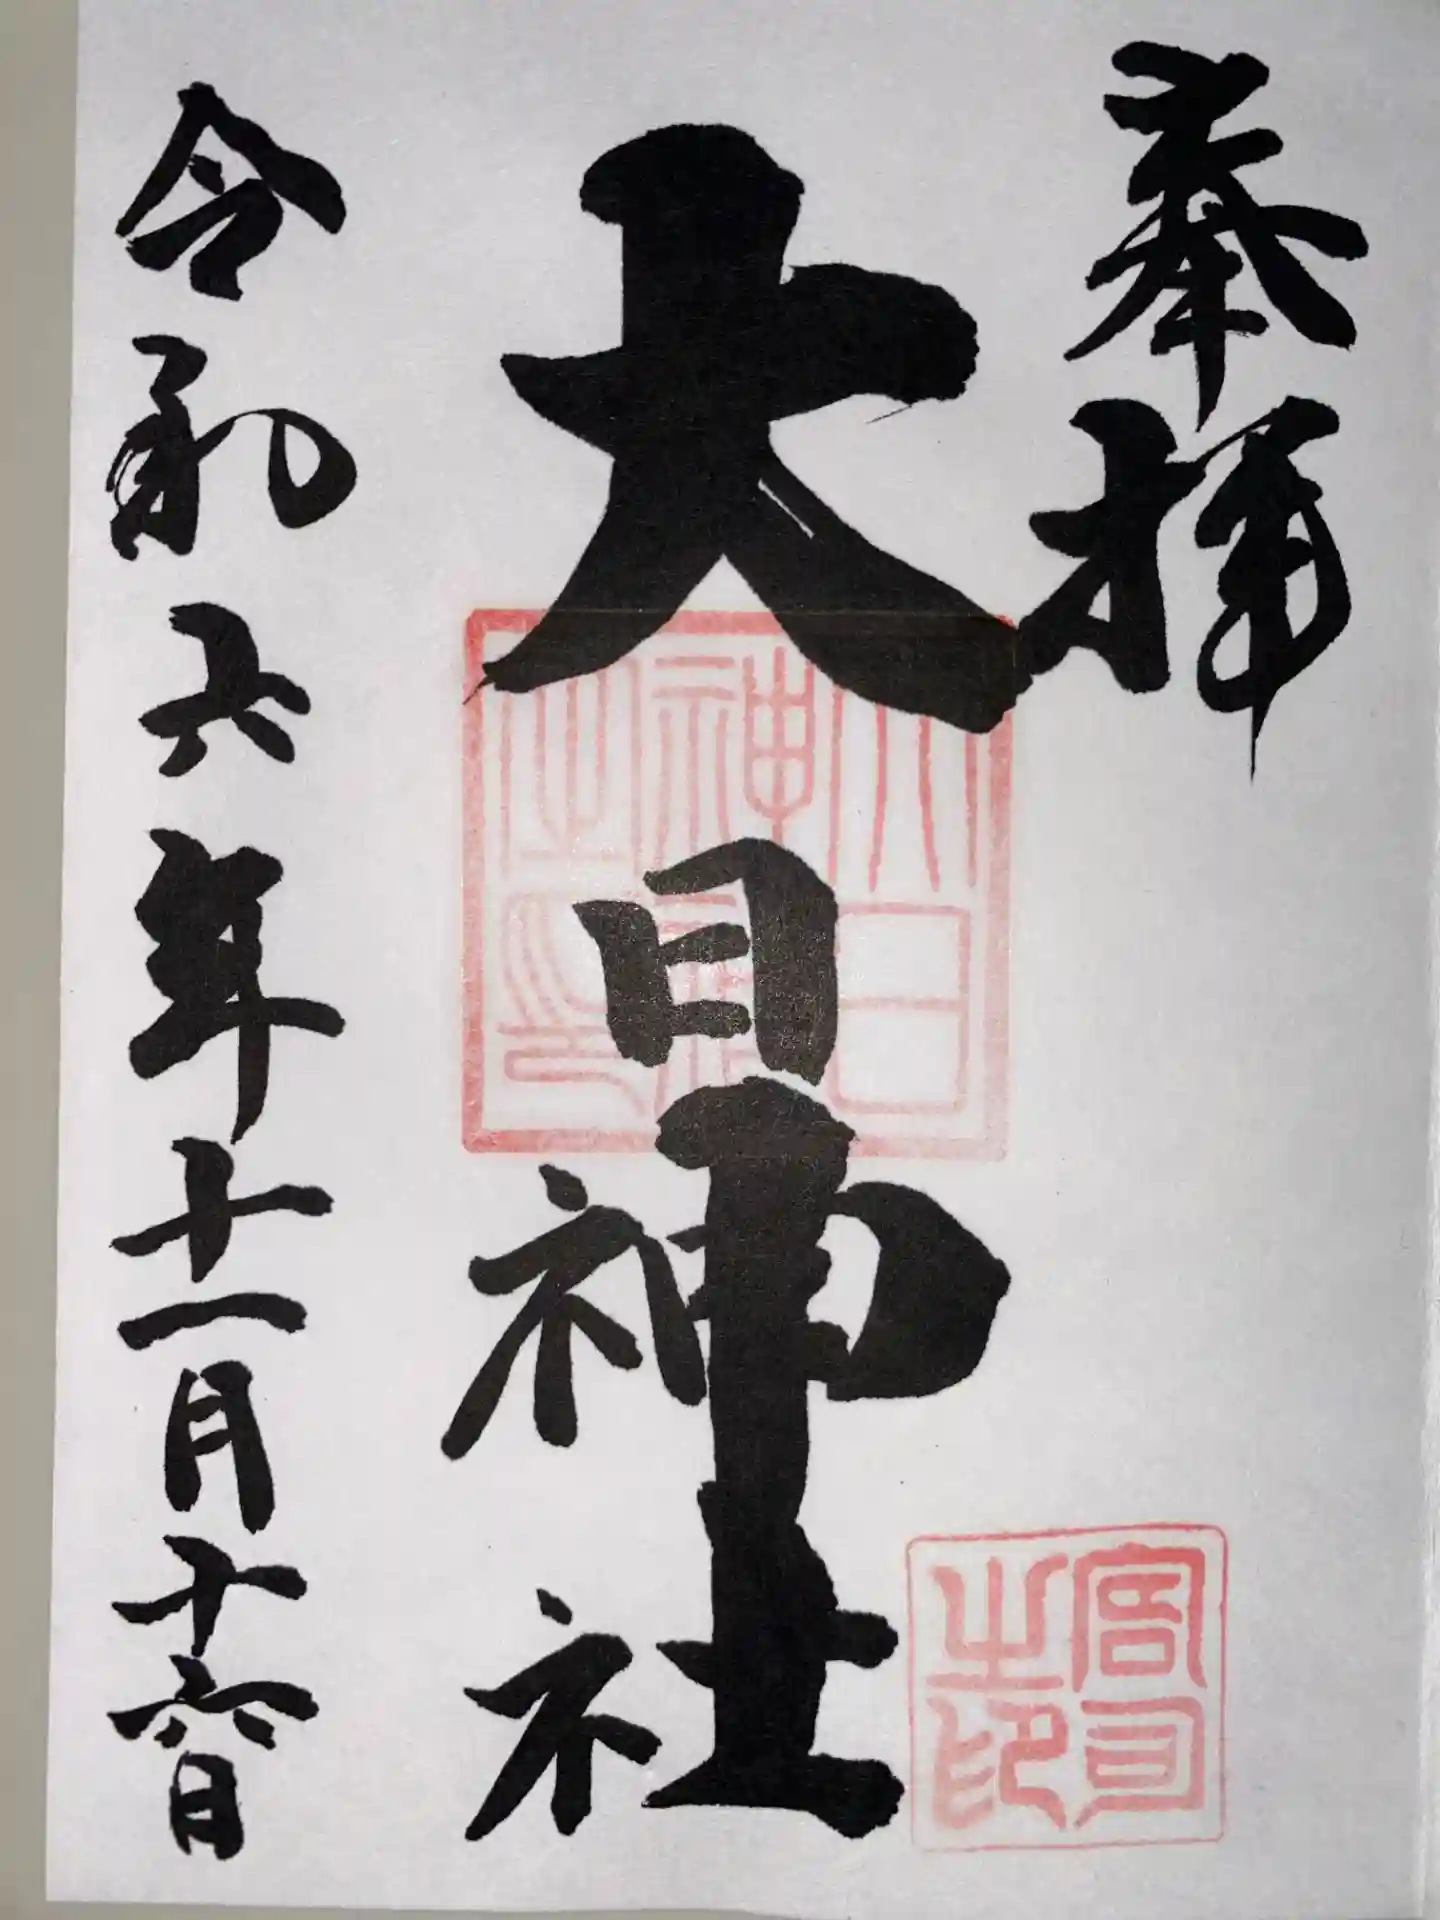 奉拝
大日神社
令和六年十一月十六日
大日神社之印
宮司之印